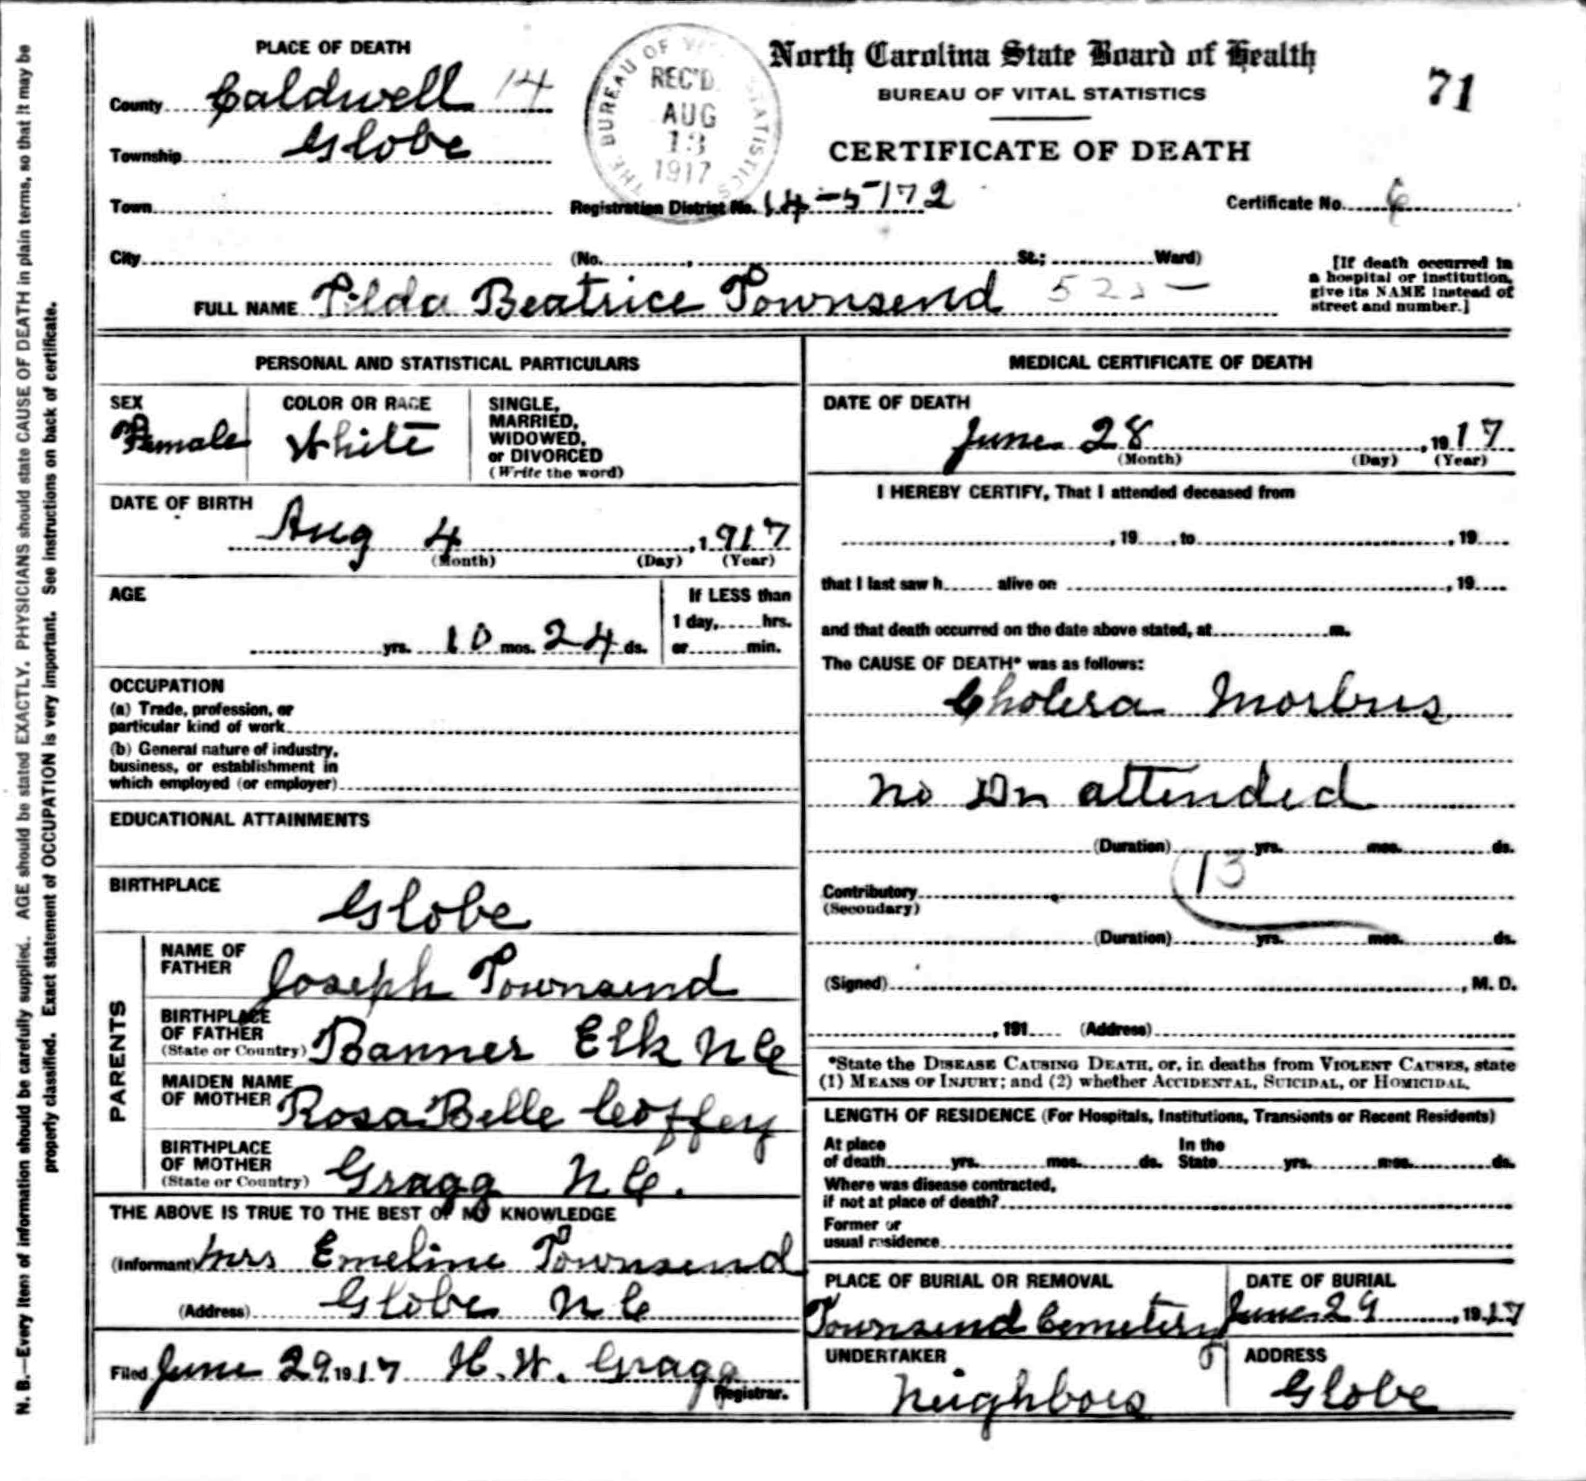 PLACE OF DEATH
County Caldwell 14
Township Globe
Town
City
THE BUREAU OF VITAL STATISTICS
REC'D.
AUG
13
1917
North Carolina State Board of Health
BUREAU OF VITAL STATISTICS
CERTIFICATE OF DEATH
71
Registration District No. 14-5172
Certificate No. 6
(No. , St.; Ward)
[If death occurred in
a hospital or institution,
give its NAME instead of
street and number.]
FULL NAME Beatrice Townsend
PERSONAL AND STATISTICAL PARTICULARS
SEX
Female
COLOR OR RACE
White
SINGLE,
MARRIED,
WIDOWED,
or DIVORCED
(Write the word)
DATE OF BIRTH
Aug 4 , 1917
(Month) (Day) (Year)
AGE
yrs. 10 mos. 24 ds.
If LESS than
1 day, hrs.
or min.
OCCUPATION
(a) Trade, profession, or
particular kind of work
(b) General nature of industry,
business, or establishment in
which employed (or employer)
EDUCATIONAL ATTAINMENTS
BIRTHPLACE
Globe
PARENTS
NAME OF
FATHER Joseph Townsend
BIRTHPLACE
OF FATHER
(State or Country) Banner Elk N C
MAIDEN NAME
OF MOTHER Rosa Belle Coffey
BIRTHPLACE
OF MOTHER
(State or Country) Gragg N C.
THE ABOVE IS TRUE TO THE BEST OF MY KNOWLEDGE
(Informant) Mrs Emeline Townsend
(Address) Globe N C
Filed June 29 1917 H. W. Gragg
Registrar.
MEDICAL CERTIFICATE OF DEATH
DATE OF DEATH
June 28 , 1917
(Month) (Day) (Year)
I HEREBY CERTIFY, That I attended deceased from
, 19 , to , 19
that I last saw h alive on , 19
and that death occurred on the date above stated, at m.
The CAUSE OF DEATH* was as follows:
Cholera Morbus
no Dr attended
(Duration) yrs. mos. ds.
13
Contributory
(Secondary)
(Duration) yrs. mos. ds.
(Signed) , M. D.
, 191 (Address)
*State the DISEASE CAUSING DEATH, or, in deaths from VIOLENT CAUSES, state
(1) MEANS OF INJURY; and (2) whether ACCIDENTAL, SUICIDAL, or HOMICIDAL.
LENGTH OF RESIDENCE (For Hospitals, Institutions, Transients or Recent Residents)
At place
of death yrs. mos. ds.
In the
State yrs. mos. ds.
Where was disease contracted,
if not at place of death?
Former or
usual residence
PLACE OF BURIAL OR REMOVAL
Townsend Cemetery
DATE OF BURIAL
June 29 , 1917
UNDERTAKER
Neighbors
ADDRESS
Globe
N. B.—Every item of information should be carefully supplied. AGE should be stated EXACTLY. PHYSICIANS should state CAUSE OF DEATH in plain terms, so that it may be
properly classified. Exact statement of OCCUPATION is very important. See instructions on back of certificate.